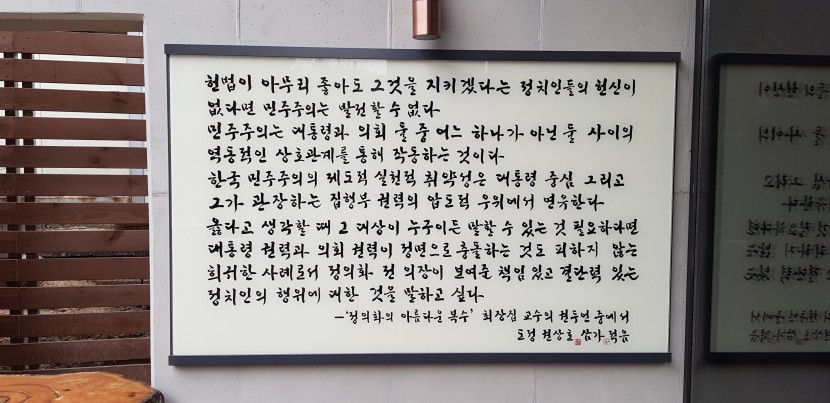 헌법이 아무리 좋아도 그것을 지키겠다는 정치인들의 헌신이
없다면 민주주의는 발전할 수 없다
민주주의는 대통령과 의회 둘 중 어느 하나가 아닌 둘 사이의
역동적인 상호관계를 통해 작동하는 것이다
한국 민주주의의 제도적 실천적 취약성은 대통령 중심 그리고
그가 관장하는 집행부 권력의 압도적 우위에서 연유한다
옳다고 생각할 때 그 대상이 누구이든 말할 수 있는 것 필요하다면
대통령 권력과 의회 권력이 정면으로 충돌하는 것도 피하지 않는
희귀한 사례로서 정의화 전 의장이 보여준 책임 있고 결단력 있는
정치인의 행위에 대한 것을 말하고 싶다
-'정의화의 아름다운 복수' 최장집 교수의 권두언 중에서
도정 권상호 삼가 적음